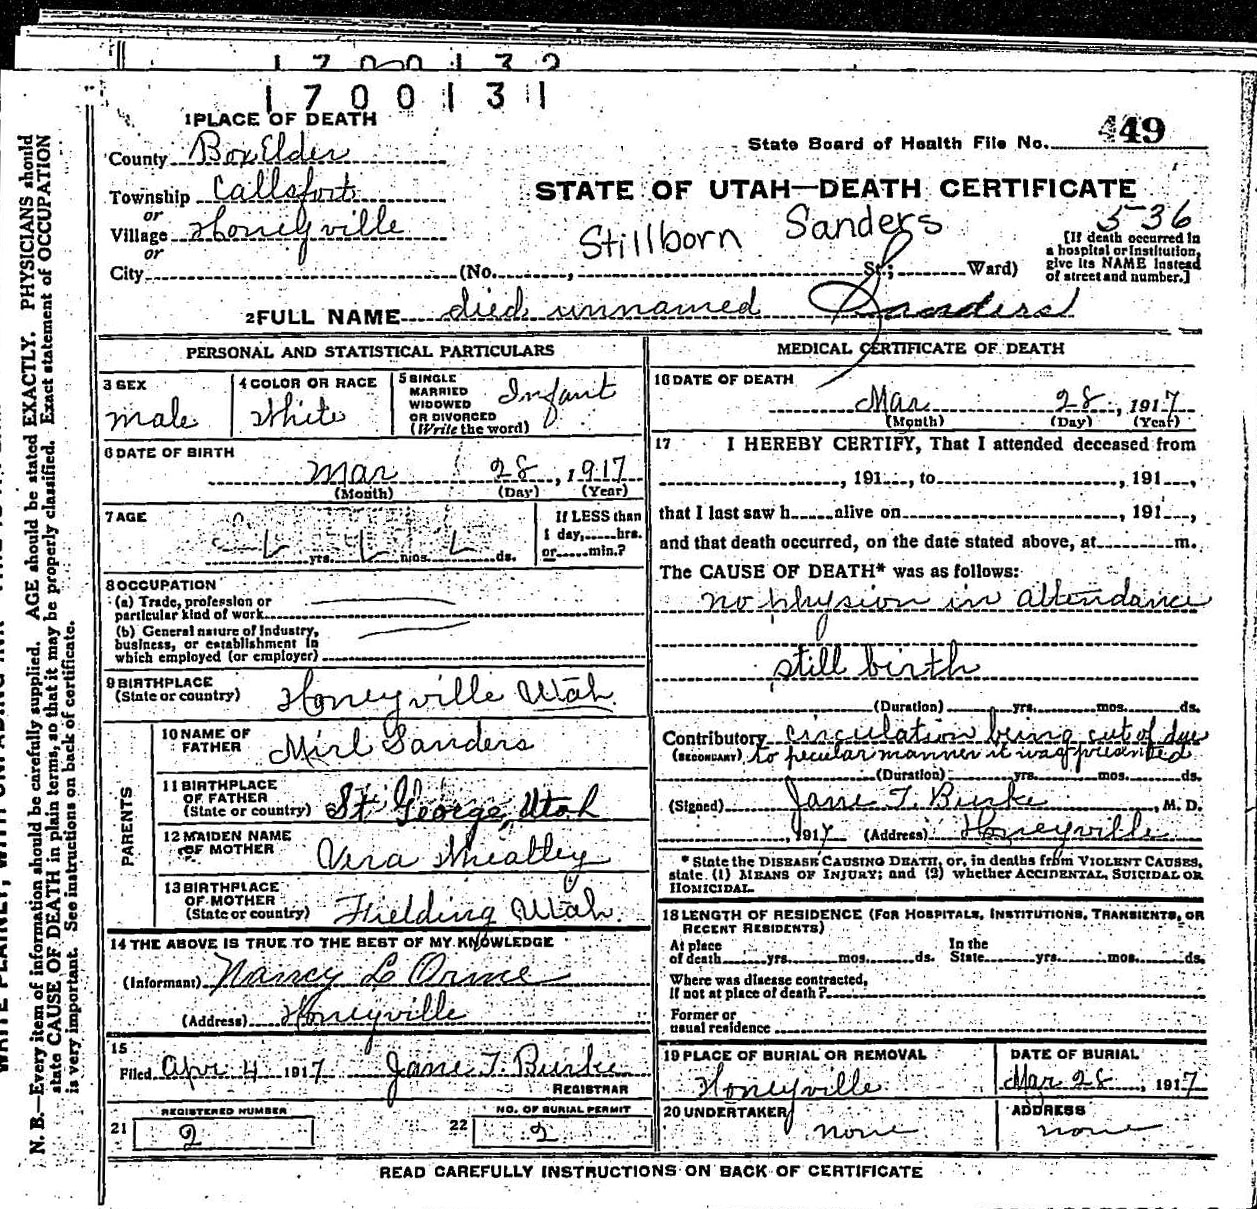 1700132
1700131
1 PLACE OF DEATH
State Board of Health File No. 49
County Box Elder
Township Callsfort
STATE OF UTAH—DEATH CERTIFICATE
or
Village Honeyville
Stillborn Sanders 536
or
City (No. , St.; Ward)
[If death occurred in
a hospital or institution,
give its NAME instead
of street and number.]
2 FULL NAME died unnamed Sanders
PERSONAL AND STATISTICAL PARTICULARS
3 SEX
male
4 COLOR OR RACE
White
5 SINGLE
MARRIED
WIDOWED
OR DIVORCED
(Write the word)
Infant
6 DATE OF BIRTH
Mar 28, 1917
(Month) (Day) (Year)
7 AGE
yrs. mos. ds.
If LESS than
1 day, hrs.
or min.?
8 OCCUPATION
(a) Trade, profession or
particular kind of work
(b) General nature of Industry,
business, or establishment in
which employed (or employer)
9 BIRTHPLACE
(State or country)
Honeyville Utah
PARENTS
10 NAME OF
FATHER
Mirl Sanders
11 BIRTHPLACE
OF FATHER
(State or country)
St George, Utah
12 MAIDEN NAME
OF MOTHER
Vera
13 BIRTHPLACE
OF MOTHER
(State or country)
Fielding Utah.
14 THE ABOVE IS TRUE TO THE BEST OF MY KNOWLEDGE
(Informant) Nancy L Orme
(Address) Honeyville
15
Filed Apr 4 1917 Jane T. Burke
REGISTRAR
REGISTERED NUMBER
21 2
NO. OF BURIAL PERMIT
22 2
MEDICAL CERTIFICATE OF DEATH
16 DATE OF DEATH
Mar 28, 1917
(Month) (Day) (Year)
17 I HEREBY CERTIFY, That I attended deceased from
, 191 , to , 191 ,
that I last saw h alive on , 191 ,
and that death occurred, on the date stated above, at m.
The CAUSE OF DEATH* was as follows:
no physion in attendance
still birth
(Duration) yrs. mos. ds.
Contributory circulation being cut of due
(SECONDARY) to pecular manner it was presented
(Duration) yrs. mos. ds.
(Signed) Jane T. Burke, M. D.
, 1917 (Address) Honeyville
* State the DISEASE CAUSING DEATH, or, in deaths from VIOLENT CAUSES,
state (1) MEANS OF INJURY; and (2) whether ACCIDENTAL, SUICIDAL OR
HOMICIDAL.
18 LENGTH OF RESIDENCE (FOR HOSPITALS, INSTITUTIONS, TRANSIENTS, OR
RECENT RESIDENTS)
At place
of death yrs. mos. ds.
In the
State yrs. mos. ds.
Where was disease contracted,
if not at place of death?
Former or
usual residence
19 PLACE OF BURIAL OR REMOVAL
Honeyville
DATE OF BURIAL
Mar 28, 1917
20 UNDERTAKER
none
ADDRESS
none
READ CAREFULLY INSTRUCTIONS ON BACK OF CERTIFICATE
N. B.—Every item of information should be carefully supplied. AGE should be stated EXACTLY. PHYSICIANS should
state CAUSE OF DEATH in plain terms, so that it may be properly classified. Exact statement of OCCUPATION
is very important. See instructions on back of certificate.